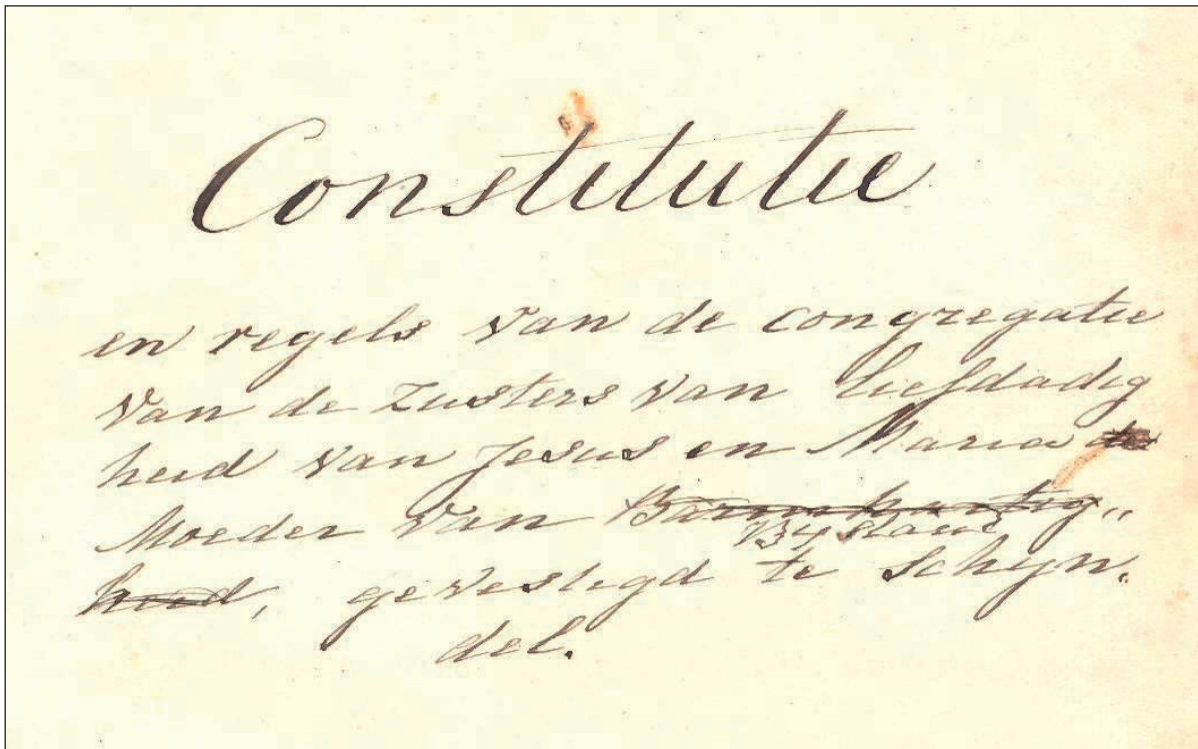 Constitutie
en regels van de congregatie
van de zusters van liefdadig
heid van Jesus en Maria
Moeder van Barmhartig„
Bijstand
heid, gevestigd te Schijn.
del.